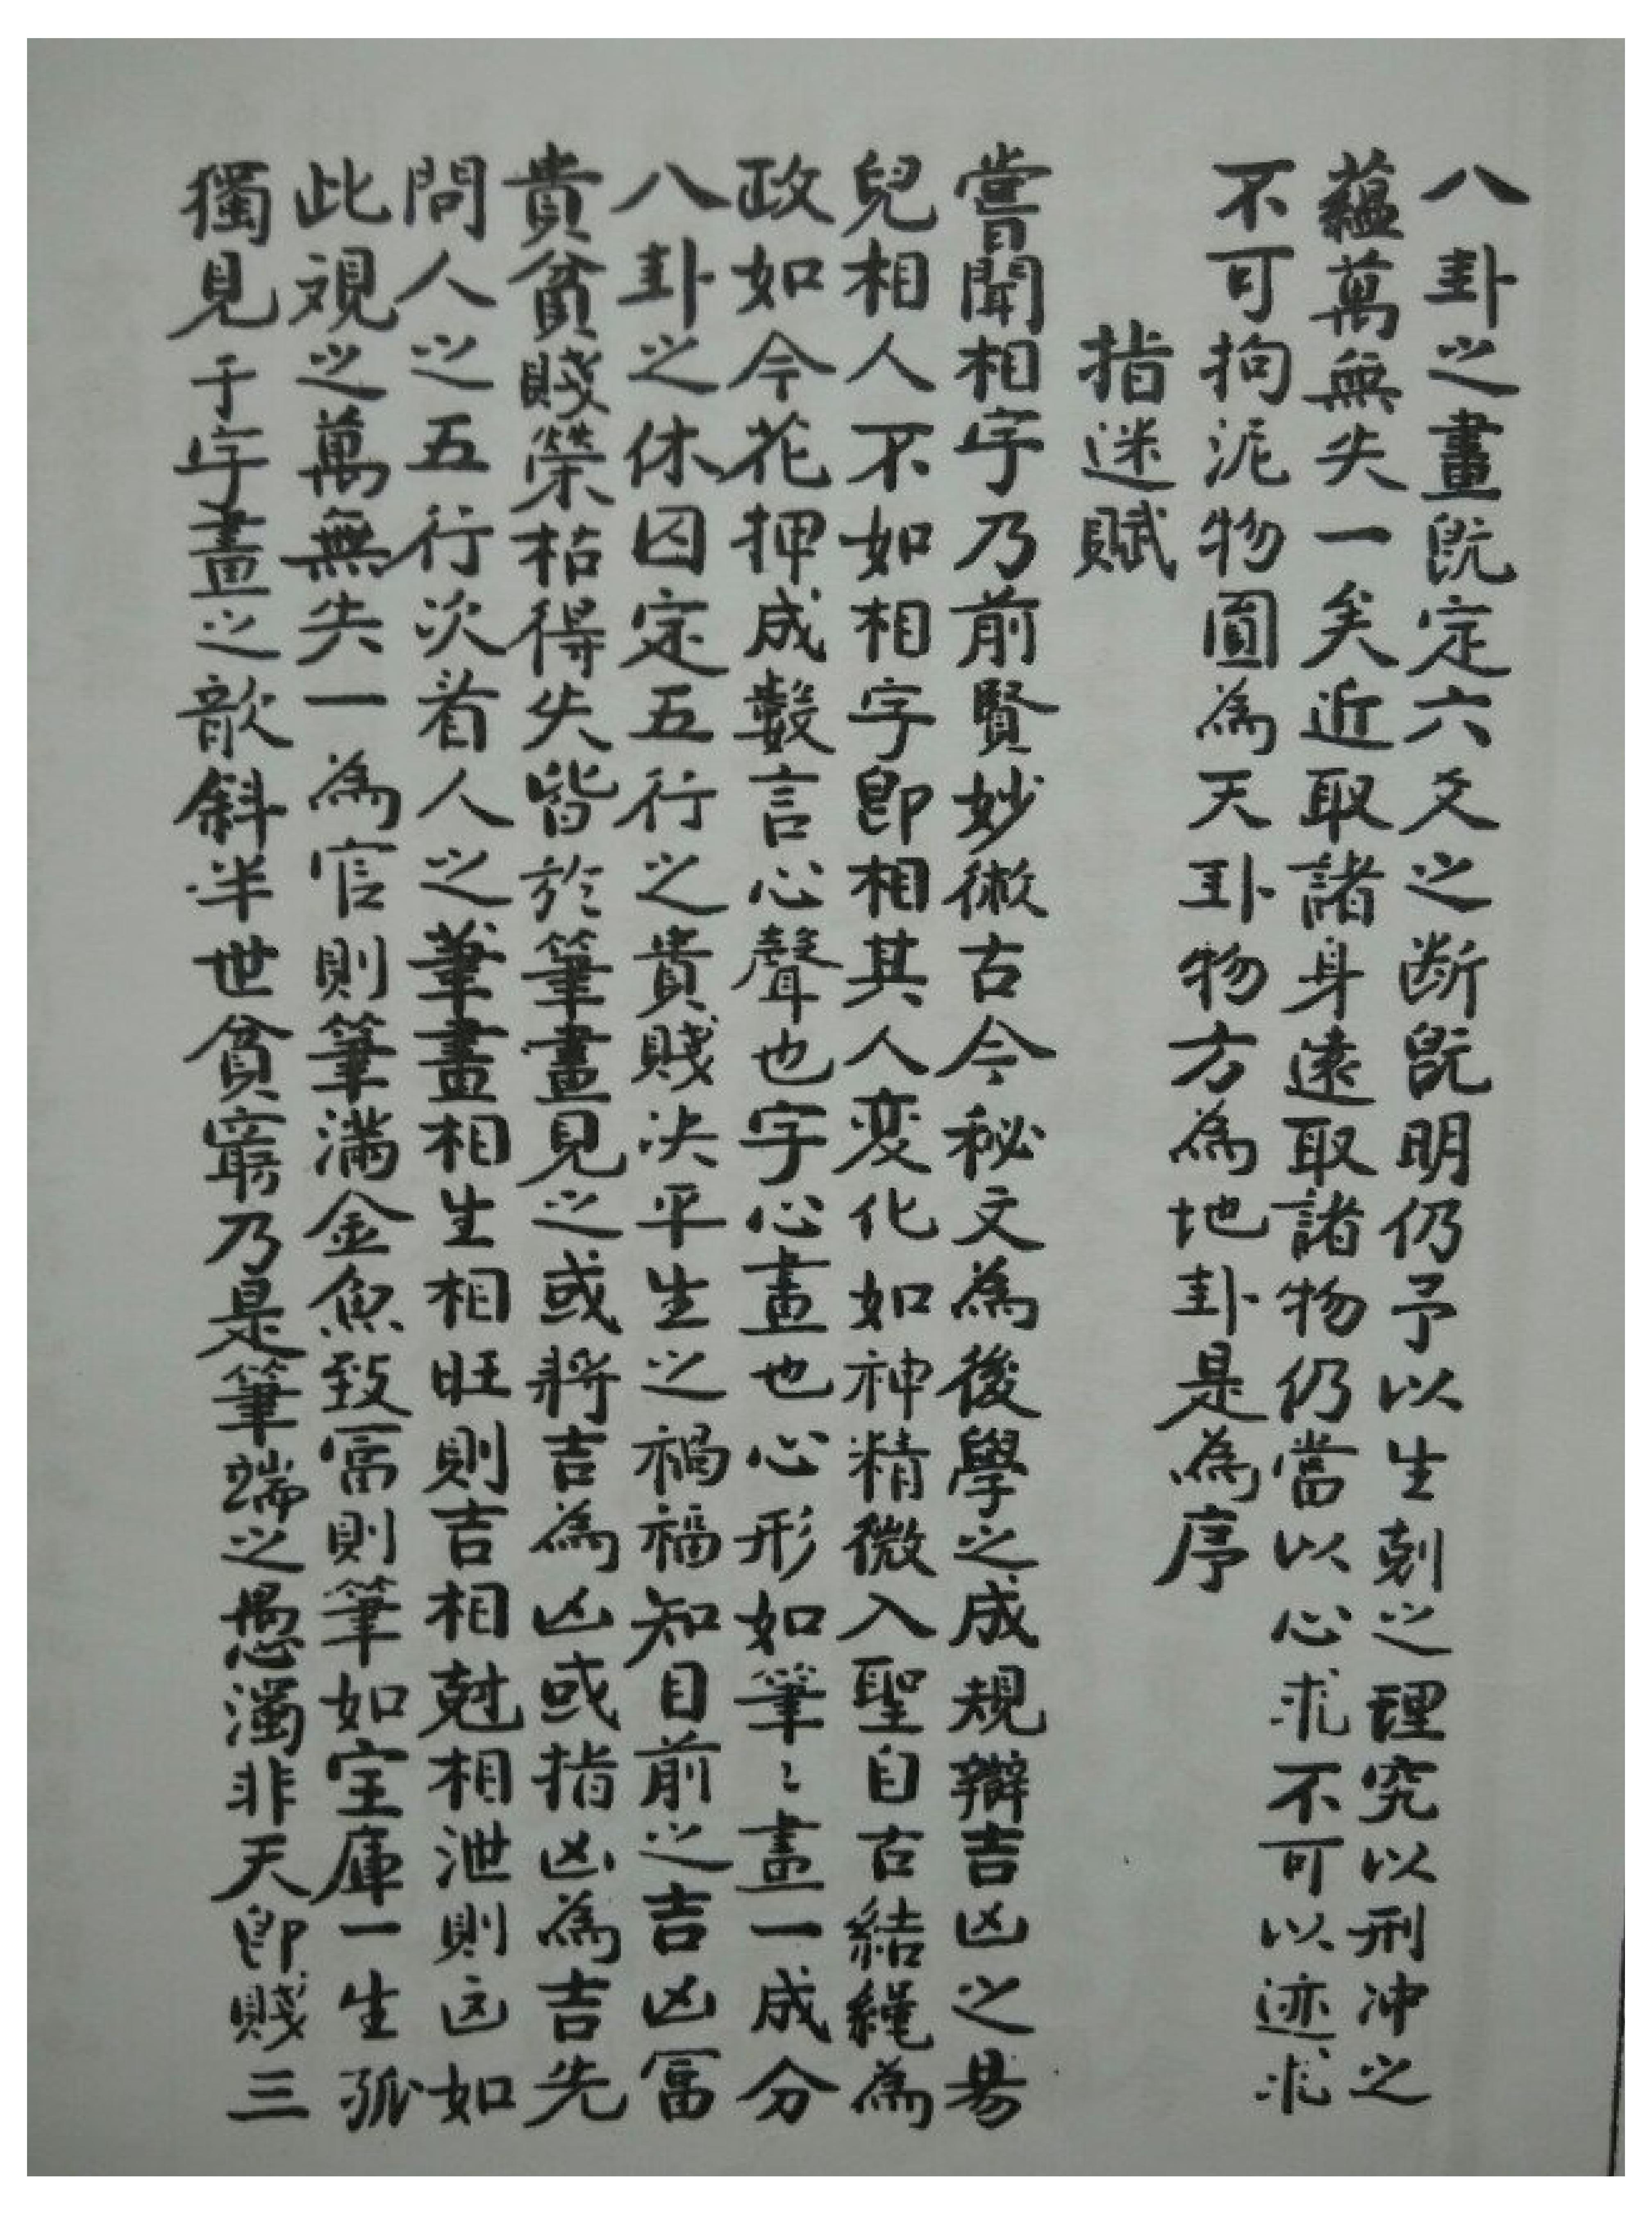 八卦之畫既定六爻之断既明仍予以生剋之理究以刑冲之
蘊萬無失一矣近取諸身遠取諸物仍當以心求不可以迹求
不可拘泥物圓為天卦物方為地卦是為序
指迷賦
嘗聞相字乃前賢妙術古今秘文為後學之成規辯吉凶之易
兒相人不如相字即相其人变化如神精微入聖自古結繩為
政如今花押成數言心聲也字心畫也心形如筆〻畫一成分
八卦之休囚定五行之貴賤决平生之禍福知目前之吉凶冨
貴貧賤榮枯得失皆於筆畫見之或將吉為凶或指凶為吉先
問人之五行次看人之筆畫相生相旺則吉相尅相泄則凶如
此視之萬無失一為官則筆滿金魚致冨則筆如宝庫一生孤
獨見于字畫之歆斜半世貧窮乃是筆端之愚濁非天即賤三